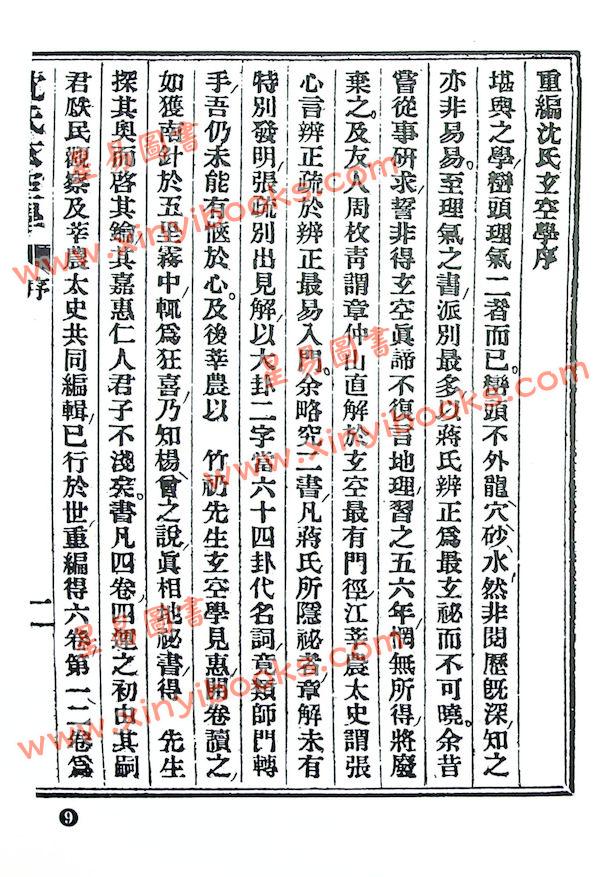 重編沈氏玄空學序
堪輿之學巒頭理氣二者而已巒頭不外龍穴砂水然非閱歷旣深知之
亦非易易至理氣之書派別最多以蔣氏辨正爲最玄祕而不可曉余昔
嘗從事研求誓非得玄空眞諦不復言地理習之五六年罔無所得將廢
棄之及友人周枚靑謂章仲山直解於玄空最有門徑江莘農太史謂張
心言辨正疏於辨正最易入門余略究二書凡蔣氏所隱祕者章解未有
特別發明張疏別出見解以大卦二字當六十四卦代名詞竟類師門轉
手吾仍未能有愜於心及後莘農以 竹礽先生玄空學見惠開卷讀之
如獲南針於五里霧中輒爲狂喜乃知楊曾之說眞相地祕書得 先生
探其奧而啓其鑰其嘉惠仁人君子不淺矣書凡四卷四運之初由其嗣
君㱔民觀察及莘農太史共同編輯已行於世重編得六卷第一二卷爲
沈氏玄空學 序
一
9
星易圖書
www.xinyibooks.com
星易圖書
www.xinyibooks.com
星易圖書
www.xinyibooks.com
星易圖書
www.xinyibooks.com